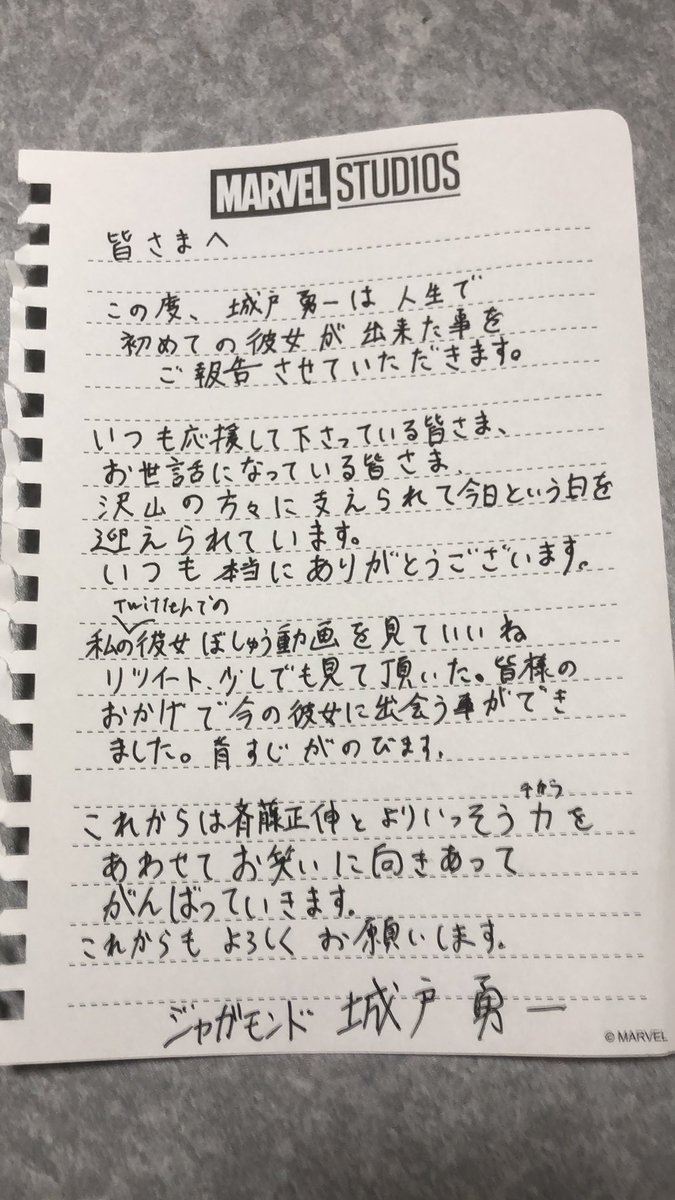 MARVEL STUDIOS
皆さまへ
この度、城戸勇一は人生で
初めての彼女が出来た事を
ご報告させていただきます。
いつも応援して下さっている皆さま、
お世話になっている皆さま、
沢山の方々に支えられて今日という日を
迎えられています。
いつも本当にありがとうございます。
Twitterでの
私の彼女ぼしゅう動画を見ていいね
リツイート、少しでも見て頂いた。皆様の
おかげで今の彼女に出会う事ができ
ました。背すじがのびます。
チカラ
これからは斉藤正伸とよりいっそう力を
あわせてお笑いに向きあって
がんばっていきます。
これからもよろしくお願いします。
ジャガモンド 城戸勇一
© MARVEL